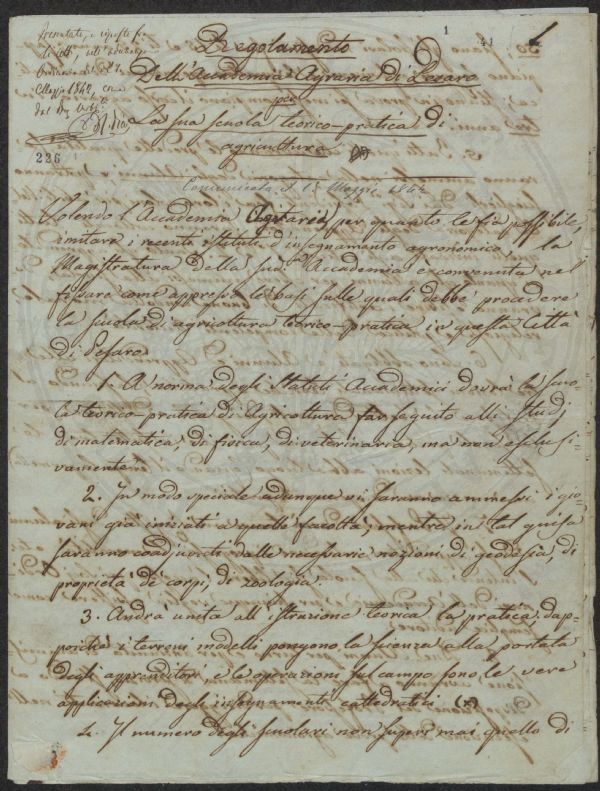 1 41
Regolamento
Dell'Accademia Agraria di Pesaro
per
La sua scuola teorico-pratica di
agricoltura
Maggio 1842,
226
Comunicata il 15 Maggio 1842
Volendo l'Accademia Agraria, per quanto le fia possibile,
imitare i recenti istituti d'insegnamento agronomico, la
Magistratura della sud.a Accademia è convenuta nel
fissare come appresso le basi sulle quali debbe procedere
la scuola di agricoltura teorico-pratica in questa Città
di Pesaro
1. A norma degli Statuti Accademici dovrà la scuo-
la teorico-pratica di Agricoltura far seguito alli studj
di matematica, di fisica, di veterinaria, ma non esclusi-
vamente.
2. In modo speciale adunque vi saranno ammessi i gio-
vani già iniziati a quelle facoltà, mentre in tal guisa
saranno coadjuvati dalle necessarie nozioni di geodesia, di
proprietà de' corpi, di zoologia.
3. Andrà unita all'istruzione teorica la pratica, dap-
poichè i terreni modelli pongono la scienza alla portata
degli apprenditori, e le operazioni sul campo sono le vere
applicazioni degli insegnamenti cattedratici
4. Il numero degli scuolari non superi mai quello di